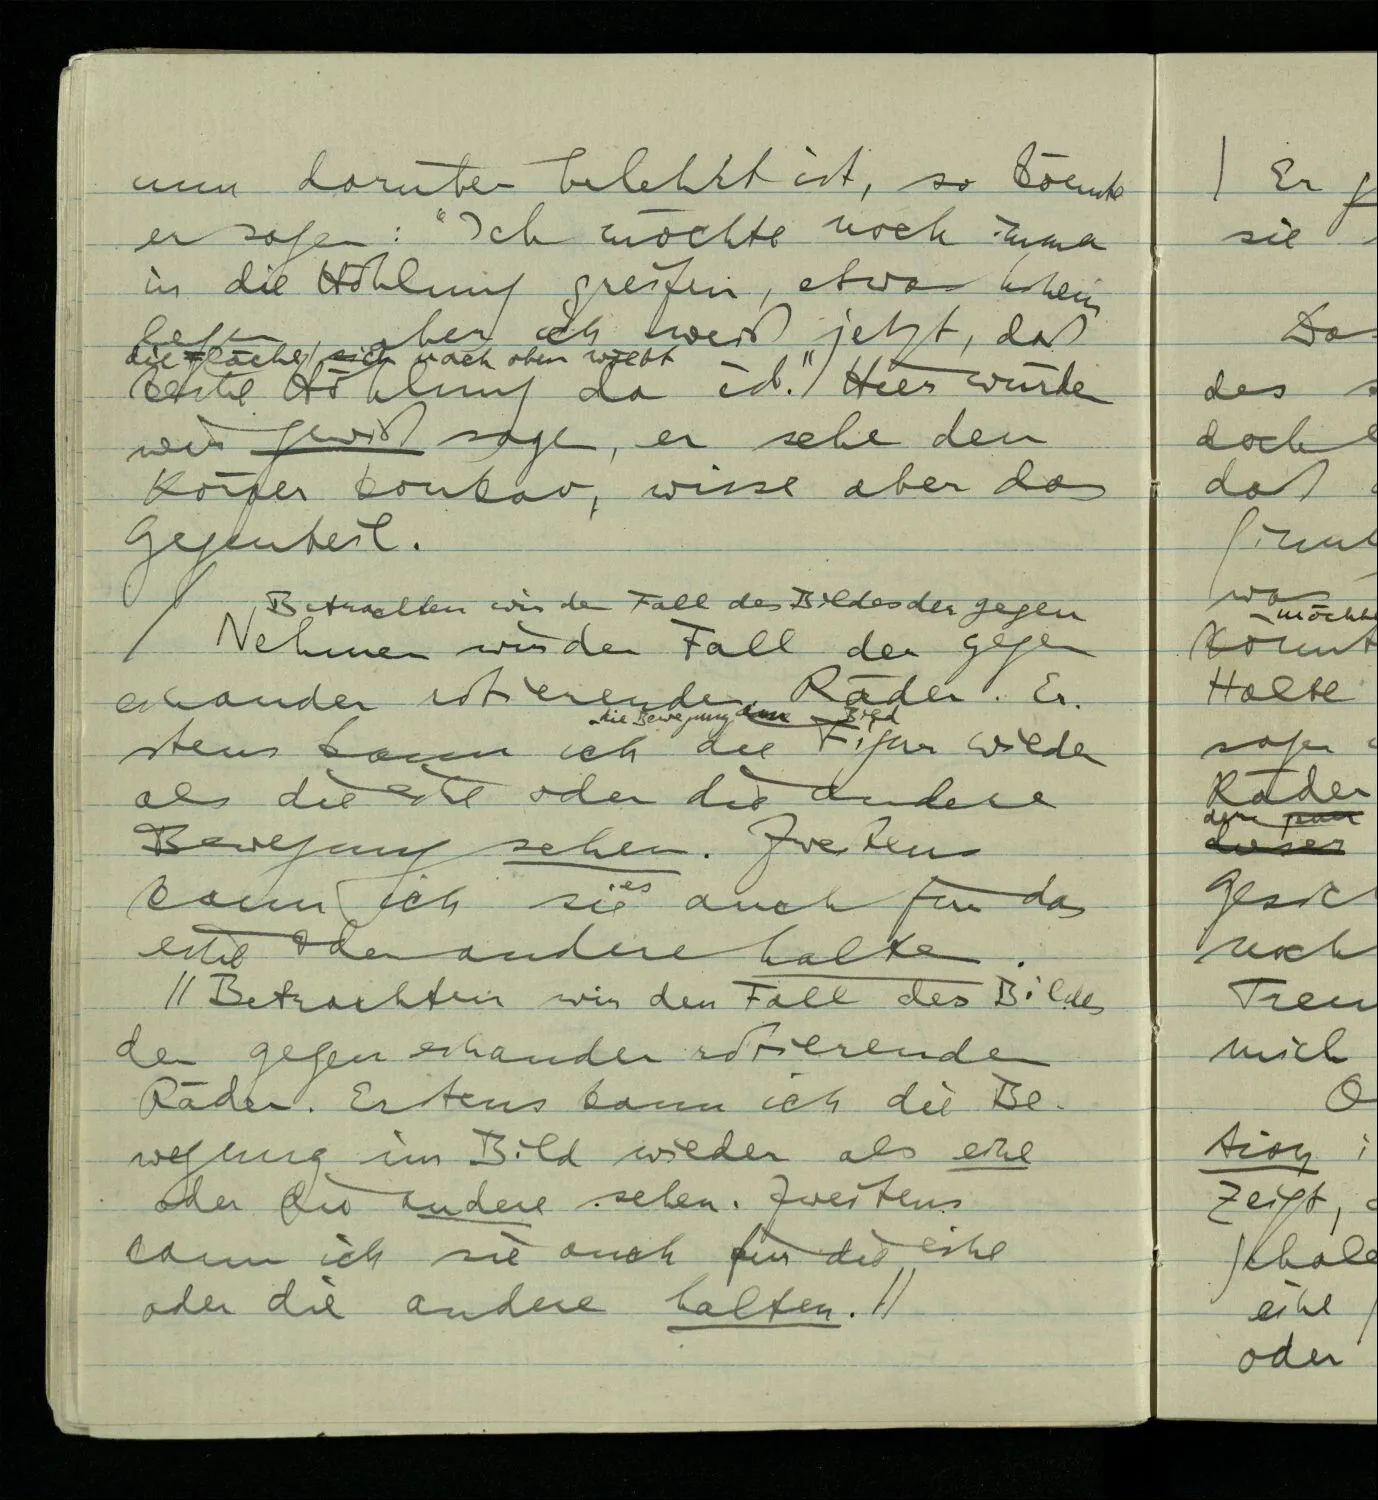 nun darüber belehrt ist, so könnte
er sagen: "Ich möchte noch immer
in die Höhlung greifen, etwas hinein
legen, aber ich weiß jetzt, daß
die Fläche sich nach oben wölbt
keine Höhlung da ist." Hier würden
wir gewiß sagen, er sehe den
Körper konkav, wisse aber das
Gegenteil.
/ Betrachten wir den Fall des Bildes der gegen
Nehmen wir den Fall der gegen
einander rotierenden Räder. Er-
die Bewegung im Bild
stens kann ich die Figur wieder
als die eine oder die andere
Bewegung sehen. Zweitens
es
kann ich sie auch für das
eine oder andere halten.
// Betrachten wir den Fall des Bildes
der gegen einander rotierenden
Räder. Erstens kann ich die Be-
wegung im Bild wieder als eine
oder die andere sehen. Zweitens
kann ich sie auch für die eine
oder die andere halten. //
/ Er
sie
Das
des
doch
daß
was
möchte
könnt
Halte
sagen
Räder
dieser
Gesich
noch
Tren
mich
O
tion
zeigt,
eine
oder